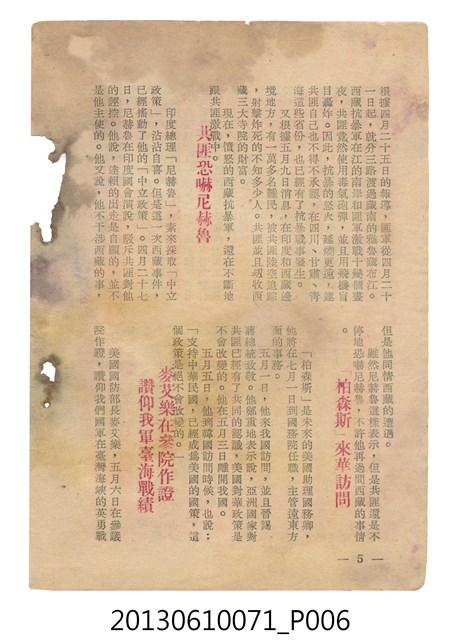 根據四月二十五日的報導，匪軍從四月二十
一日起，就分三路渡過藏南的雅魯藏布江。
西藏抗暴軍在江的南岸和匪軍激戰十幾個晝
夜，共匪竟然使用毒氣砲彈，並且用飛機盲
目轟炸。因此，抗暴的怒火，延燒更遠，連
共匪自己也不得不承認，在四川、甘肅、青
海這些省份，也已經有了抗暴戰事發生。
又根據五月九日消息，在印度和西藏邊
境地方，有一萬多名難民，被共匪陸空追踪
，射擊炸死的不知多少人。共匪並且刼收西
藏三大寺院的財富。
現在，憤怒的西藏抗暴軍，還在不斷地
跟共匪激戰中。
共匪恐嚇尼赫魯
印度總理「尼赫魯」，素來採取「中立
政策」，沾沾自喜。但是這一次西藏事件，
已經搖動了他的「中立政策」。四月二十七
日，尼赫魯在印度國會演說，駁斥共匪對他
的誣控。他說，達賴的出走是自願的，並不
是他主使的。他又說，他不干涉西藏的事，
但是他同情西藏的遭遇。
雖然尼赫魯這樣表示，但是共匪還是不
停地恐嚇尼赫魯，不許他再過問西藏的事情
。
柏森斯 來華訪問
「柏森斯」是未來的美國助理國務卿，
他將在七月一日到國務院任職，主管遠東方
面的事務。
五月一日，他來我國訪問，並且晉謁
蔣總統致敬。他鄭重地表示說，亞洲國家對
共匪已經有了共同的認識，美國對華政策是
不會改變的。他在五月三日離開我國。
五月五日，他到韓國訪問時候，也說：
「支持中華民國，已經成爲美國的國策，這
個政策是絕不會改變的。」
麥艾樂在參院作證
讚仰我軍臺海戰績
美國國防部長麥艾樂，五月六日在參議
院作證，讚仰我們國軍在臺灣海峽的英勇戰
— 5 —
20130610071_P006